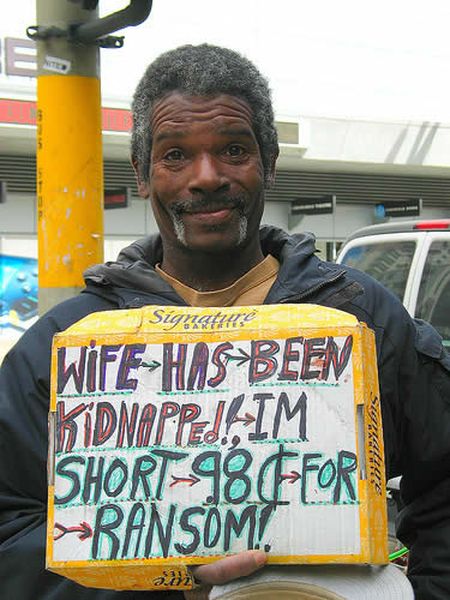 BUS STOP
Signature
BAKERIES
WiFE→HAS→BEEN
KiDNAPPEd!!→IM
SHORT→98¢→FOR
→RANSOM!
Signature
Signature